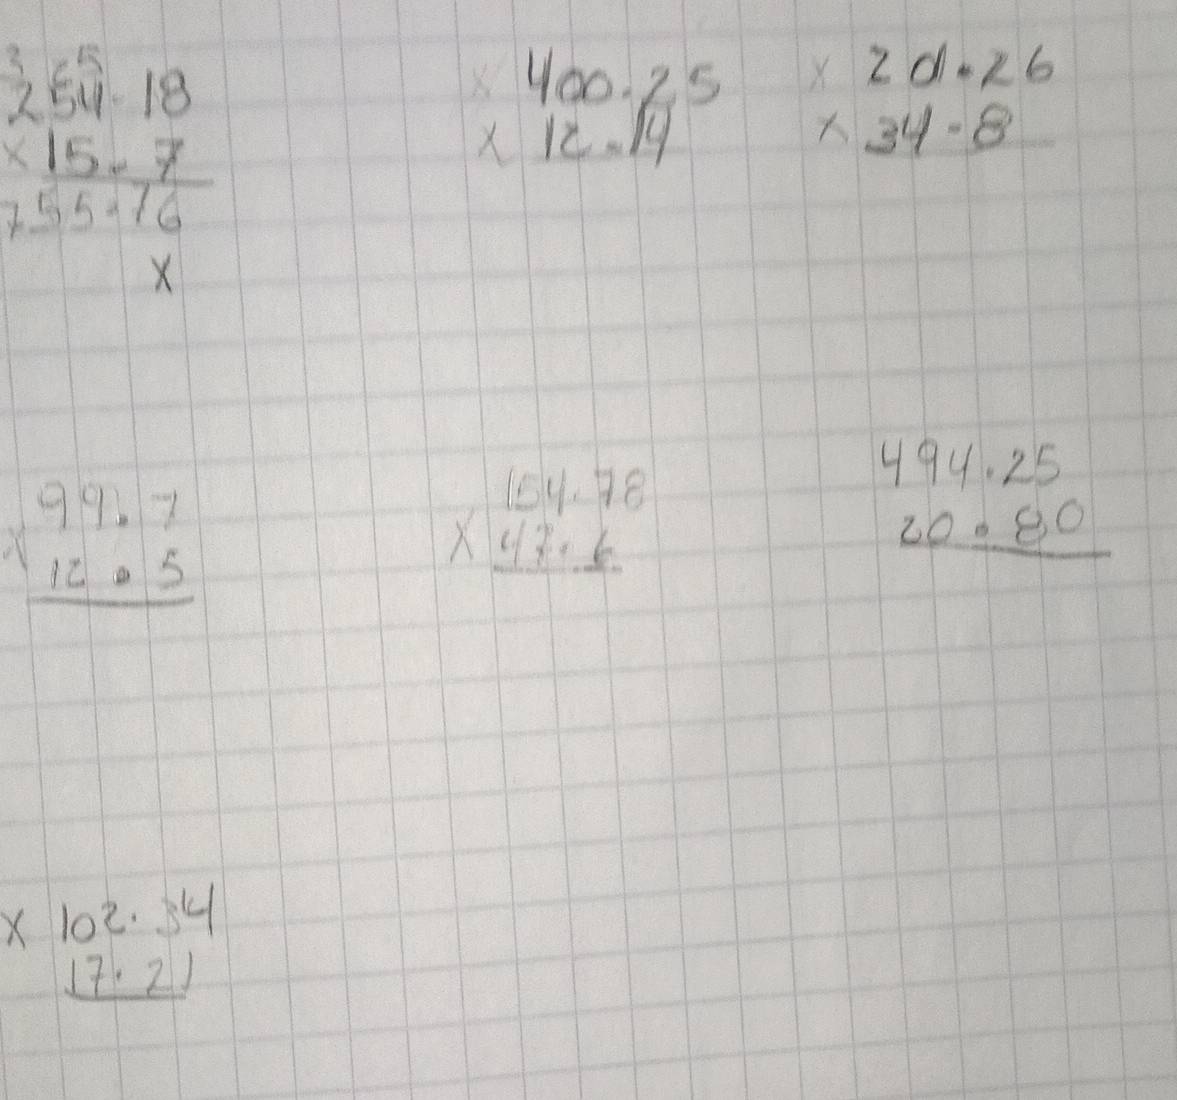 3 5
254.18
× 15.7
755.76
×
× 400.25
× 12.14
× 20.26
× 34.8
99.7
× 12.5
154.78
× 47.6
494.25
20.80
× 102.34
17.21